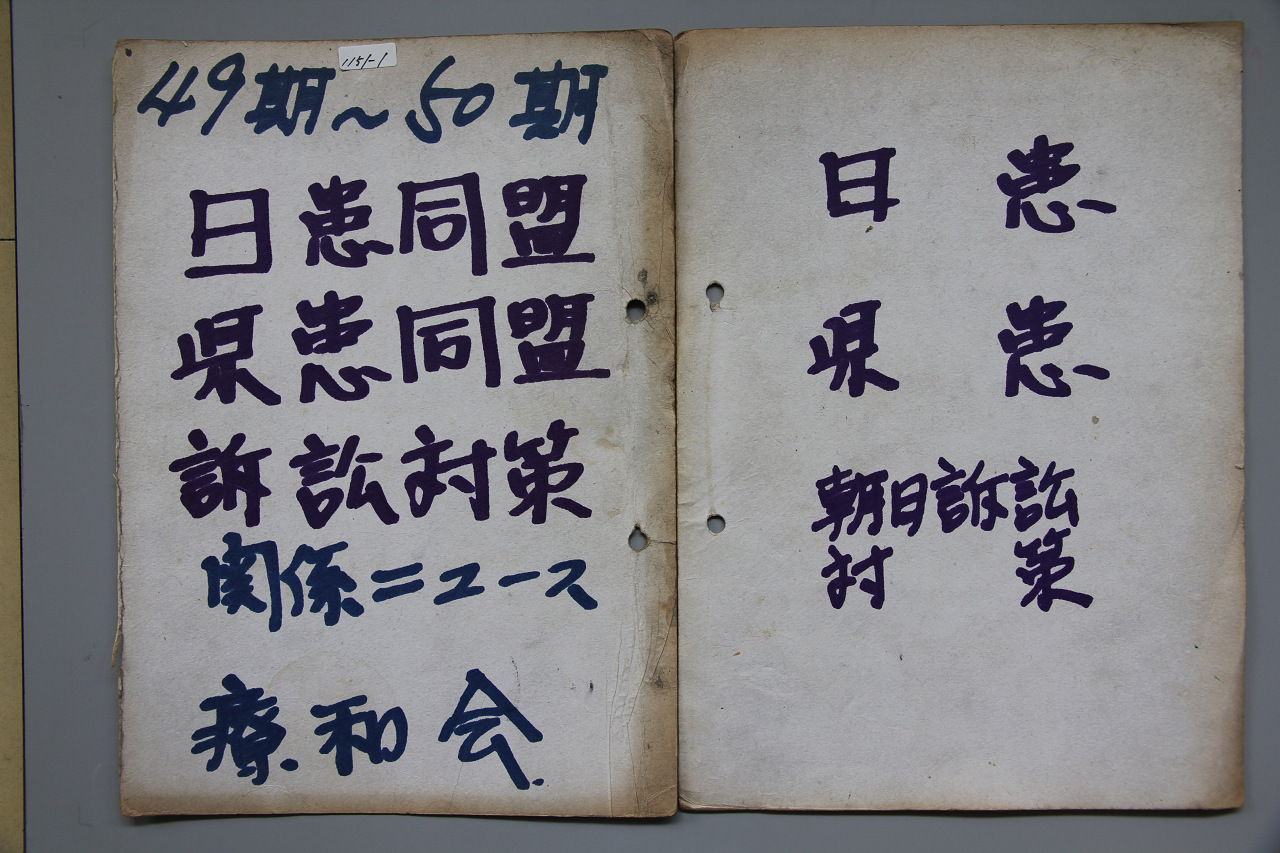 1151-1
49期~50期
日患同盟
県患同盟
訴訟対策
関係ニュース
療和会.
日患
県患
朝日訴訟
対策